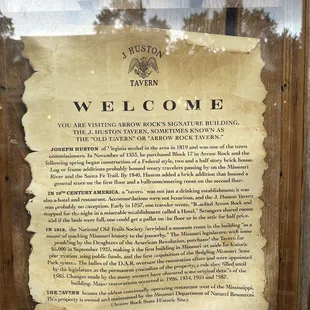 J HUSTON
TAVERN
WELCOME
YOU ARE VISITING ARROW ROCK'S SIGNATURE BUILDING,
THE J. HUSTON TAVERN, SOMETIMES KNOWN AS
THE "OLD TAVERN" OR "ARROW ROCK TAVERN."
JOSEPH HUSTON of Virginia settled in the area in 1819 and was one of the town
commissioners. In November of 1833, he purchased Block 17 in Arrow Rock and the
following spring began construction of a Federal style, two and a half story brick house.
Log or frame additions probably housed weary travelers passing by on the Missouri
River and the Santa Fe Trail. By 1840, Huston added a brick addition that housed a
general store on the first floor and a ballroom/meeting room on the second floor.
IN 19TH CENTURY AMERICA, a "tavern" was not just a drinking establishment; it was
also a hotel and restaurant. Accommodations were not luxurious, and the J. Huston Tavern
was probably no exception. Early in 1857, one traveler wrote, "Reached Arrow Rock and
stopped for the night in a miserable establishment called a Hotel." Strangers shared rooms
and if the beds were full, one could get a pallet on the floor or in the attic for half price.
IN 1912, the National Old Trails Society furnished a museum room in the building "as a
means of teaching Missouri history to the passerby." The Missouri legislature, with some
prodding by the Daughters of the American Revolution, purchased the Tavern for
$5,000 in September 1923, making it the first building in Missouri set aside for historic
preservation using public funds, and the first acquisition of the fledgling Missouri State
Park system. The ladies of the D.A.R. oversaw the restoration efforts and were appointed
by the legislature as the permanent custodian of the property; a role they filled until
the 1980s. Changes made by the many owners have obscured some original details of the
building. Major restorations occurred in 1926, 1954, 1955 and 1987.
THE TAVERN remains the oldest continually operating restaurant west of the Mississippi.
This property is owned and maintained by the Missouri Department of Natural Resources
(Arrow Rock State Historic Site).